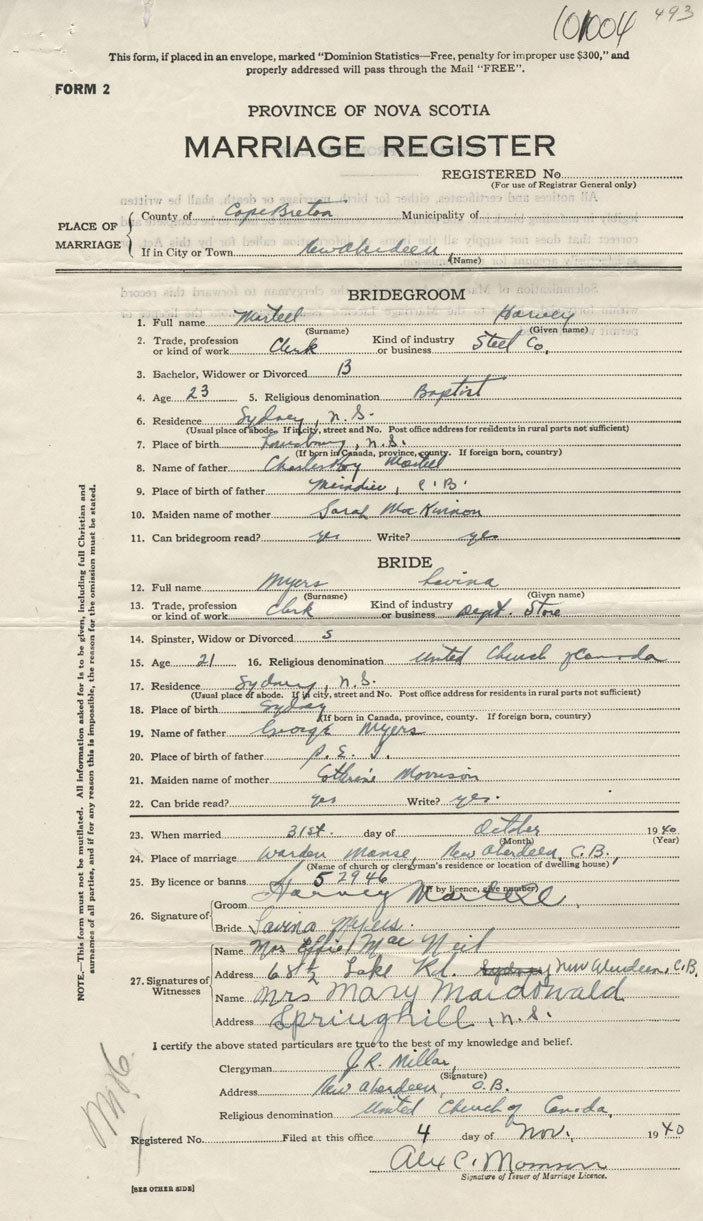 101004 493
This form, if placed in an envelope, marked "Dominion Statistics—Free, penalty for improper use $300," and
properly addressed will pass through the Mail "FREE".
FORM 2
PROVINCE OF NOVA SCOTIA
MARRIAGE REGISTER
REGISTERED No.
(For use of Registrar General only)
PLACE OF MARRIAGE
County of Cape Breton Municipality of
If in City or Town New Aberdeen
(Name)
BRIDEGROOM
1. Full name Martell Harvey
(Surname) (Given name)
2. Trade, profession or kind of work Clerk Kind of industry or business Steel Co.
3. Bachelor, Widower or Divorced B
4. Age 23 5. Religious denomination Baptist
6. Residence Sydney, N.S.
(Usual place of abode. If in city, street and No. Post office address for residents in rural parts not sufficient)
7. Place of birth Louisburg, N.S.
(If born in Canada, province, county. If foreign born, country)
8. Name of father Charles Roy Martell
9. Place of birth of father Maindieu, C.B.
10. Maiden name of mother Sarah MacKinnon
11. Can bridegroom read? yes Write? yes
BRIDE
12. Full name Myers Lavina
(Surname) (Given name)
13. Trade, profession or kind of work Clerk Kind of industry or business Dept. Store
14. Spinster, Widow or Divorced S
15. Age 21 16. Religious denomination United Church of Canada
17. Residence Sydney, N.S.
(Usual place of abode. If in city, street and No. Post office address for residents in rural parts not sufficient)
18. Place of birth Sydney
(If born in Canada, province, county. If foreign born, country)
19. Name of father George Myers
20. Place of birth of father P.E.I.
21. Maiden name of mother Cathrine Morrison
22. Can bride read? yes Write? yes.
23. When married 31st. day of October 1940
(Month) (Year)
24. Place of marriage Warden Manse, New Aberdeen, C.B.,
(Name of church or clergyman's residence or location of dwelling house)
25. By licence or banns 52946
(If by licence, give number)
26. Signature of
Groom Harvey Martell.
Bride Lavina Myers.
27. Signatures of Witnesses
Name Mrs Effie MacNeil
Address 68½ Lake Rd. Sydney New Aberdeen, C.B.
Name Mrs Mary Macdonald
Address Springhill, N.S.
I certify the above stated particulars are true to the best of my knowledge and belief.
Clergyman J.R. Millar,
(Signature)
Address New Aberdeen, C.B.
Religious denomination United Church of Canada,
Registered No. Filed at this office 4 day of Nov. 1940
Alex C.
Signature of Issuer of Marriage Licence.
[SEE OTHER SIDE]
NOTE.—This form must not be mutilated. All information asked for is to be given, including full Christian and
surnames of all parties, and if for any reason this is impossible, the reason for the omission must be stated.